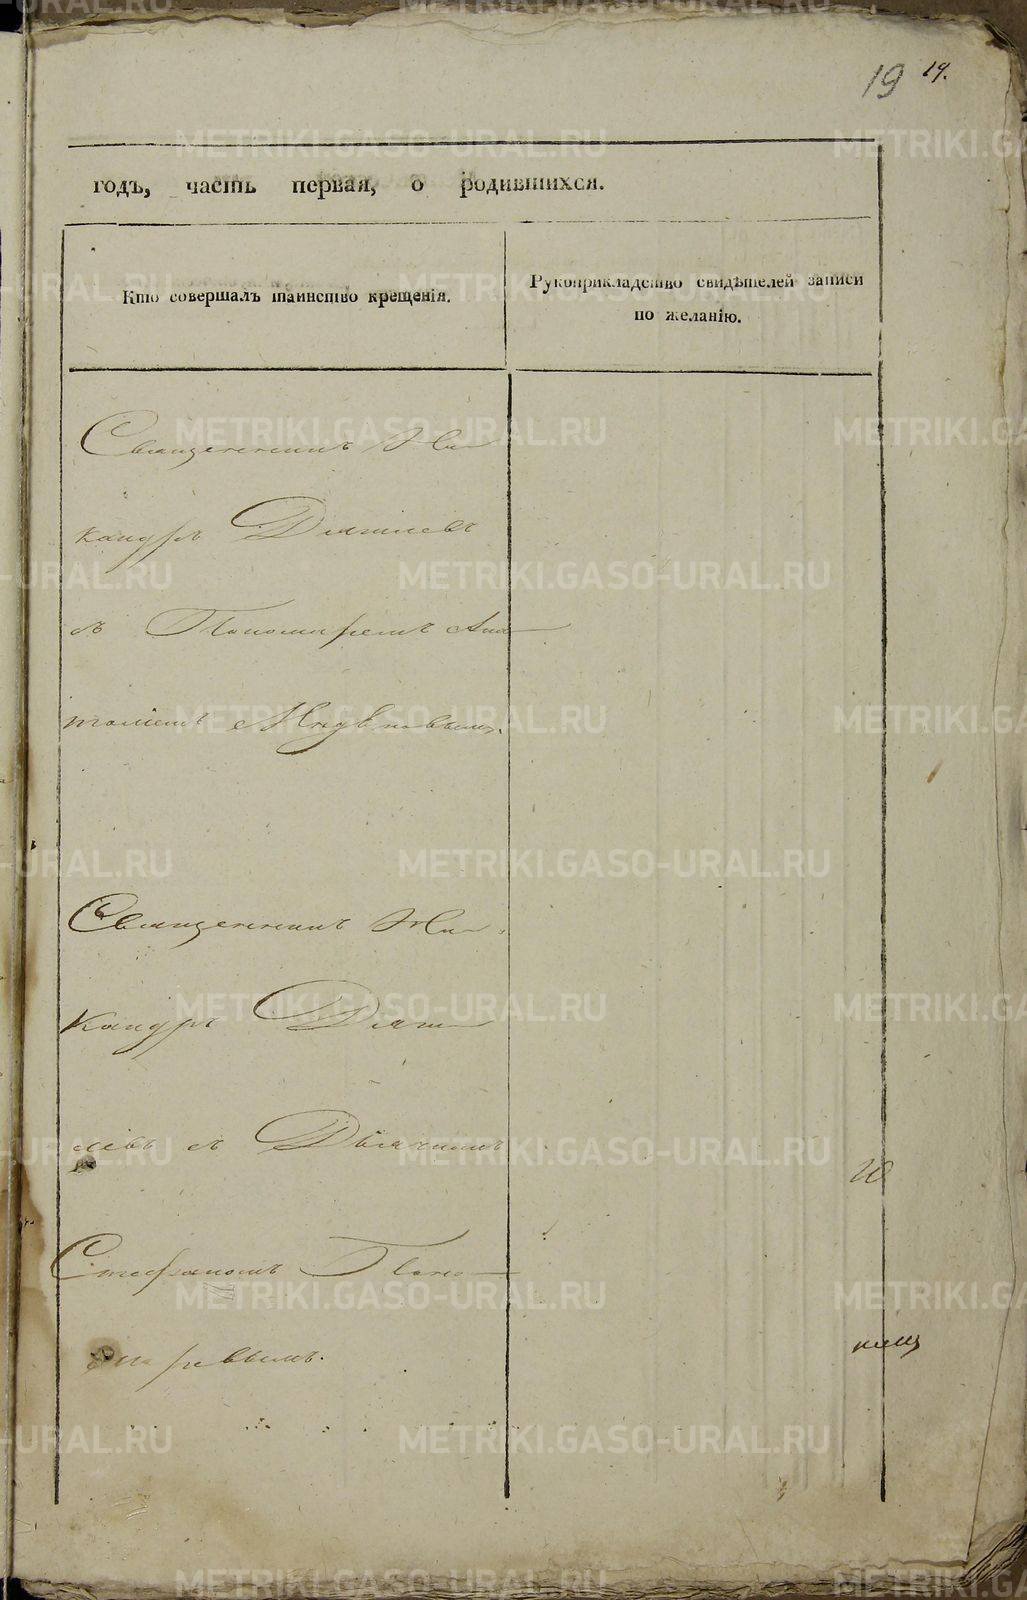 19 19.
годъ, часть первая, о родившихся.
Кто совершалъ таинство крещенія.
Рукоприкладство свидѣтелей записи
по желанію.
Священникъ Ни
кандръ
съ Пономаремъ Ана
толіемъ
Священникъ Ни
кандръ
съ Дьячкомъ
Стефаномъ Поно
маревымъ.
METRIKI.GASO-URAL.RU